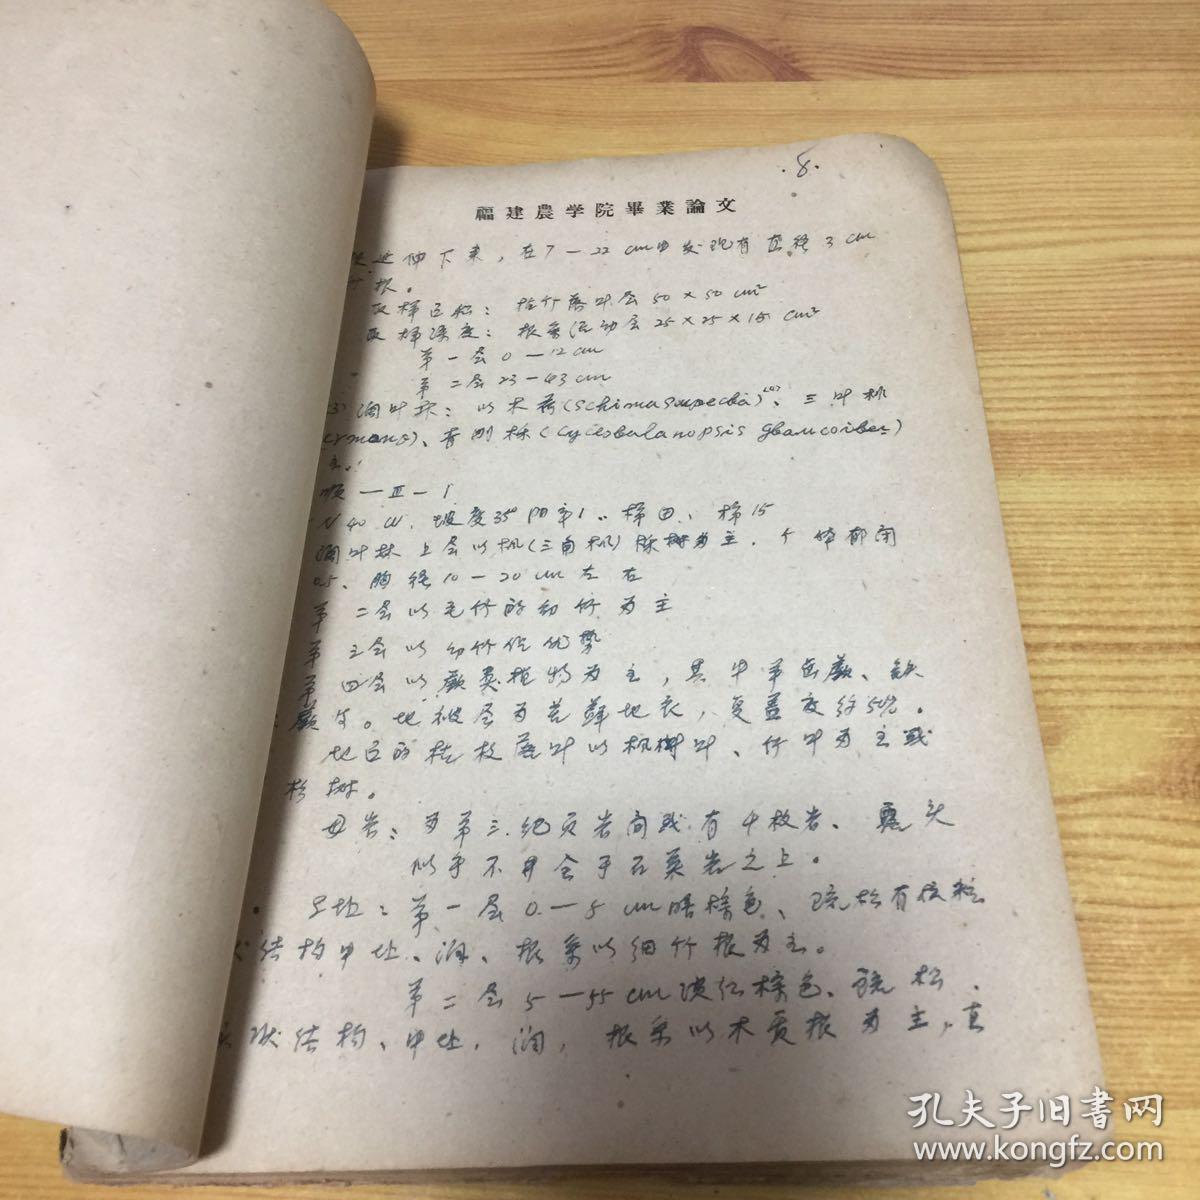 .8.
福建農学院畢業論文
延伸下来，在7—22cm中发现有直径3cm
根。
取样面积：枯竹落叶层50×50cm²
取样深度：根系活动层25×25×15cm²
第一层0—12cm
第二层23—43cm
(3)阔叶林：以木荷(Schima superba)、三叶枫
、青刚栎(Cyclobalanopsis glaucoides)
主。
顺—Ⅲ—1
N40W，坡度35°
阔叶林上层以枫(三角枫)栎树为主，个体郁闭
0.5、胸径10—20cm左右
第二层以毛竹的幼竹为主
第三层以幼竹佔优势
第四层以蕨类植物为主，其中羊齿蕨、铁
蕨等。地被层为苔藓地衣，复盖度约50%。
地面的枯枝落叶以枫树叶、竹叶为主或
杉树。
母岩：为第三纪页岩间或有千枚岩、露头
似乎不整合于石英岩之上。
土壤：第一层0—5cm暗棕色、疏松有核粒
状结构中壤、润、根系以细竹根为主。
第二层5—55cm淡红棕色、疏松、
状结构、中壤，润，根系以木质根为主，直
孔夫子旧书网
www.kongfz.com